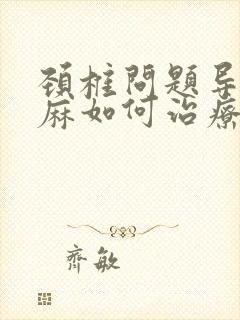 頚椎問題导
麻如何治療
齊敏